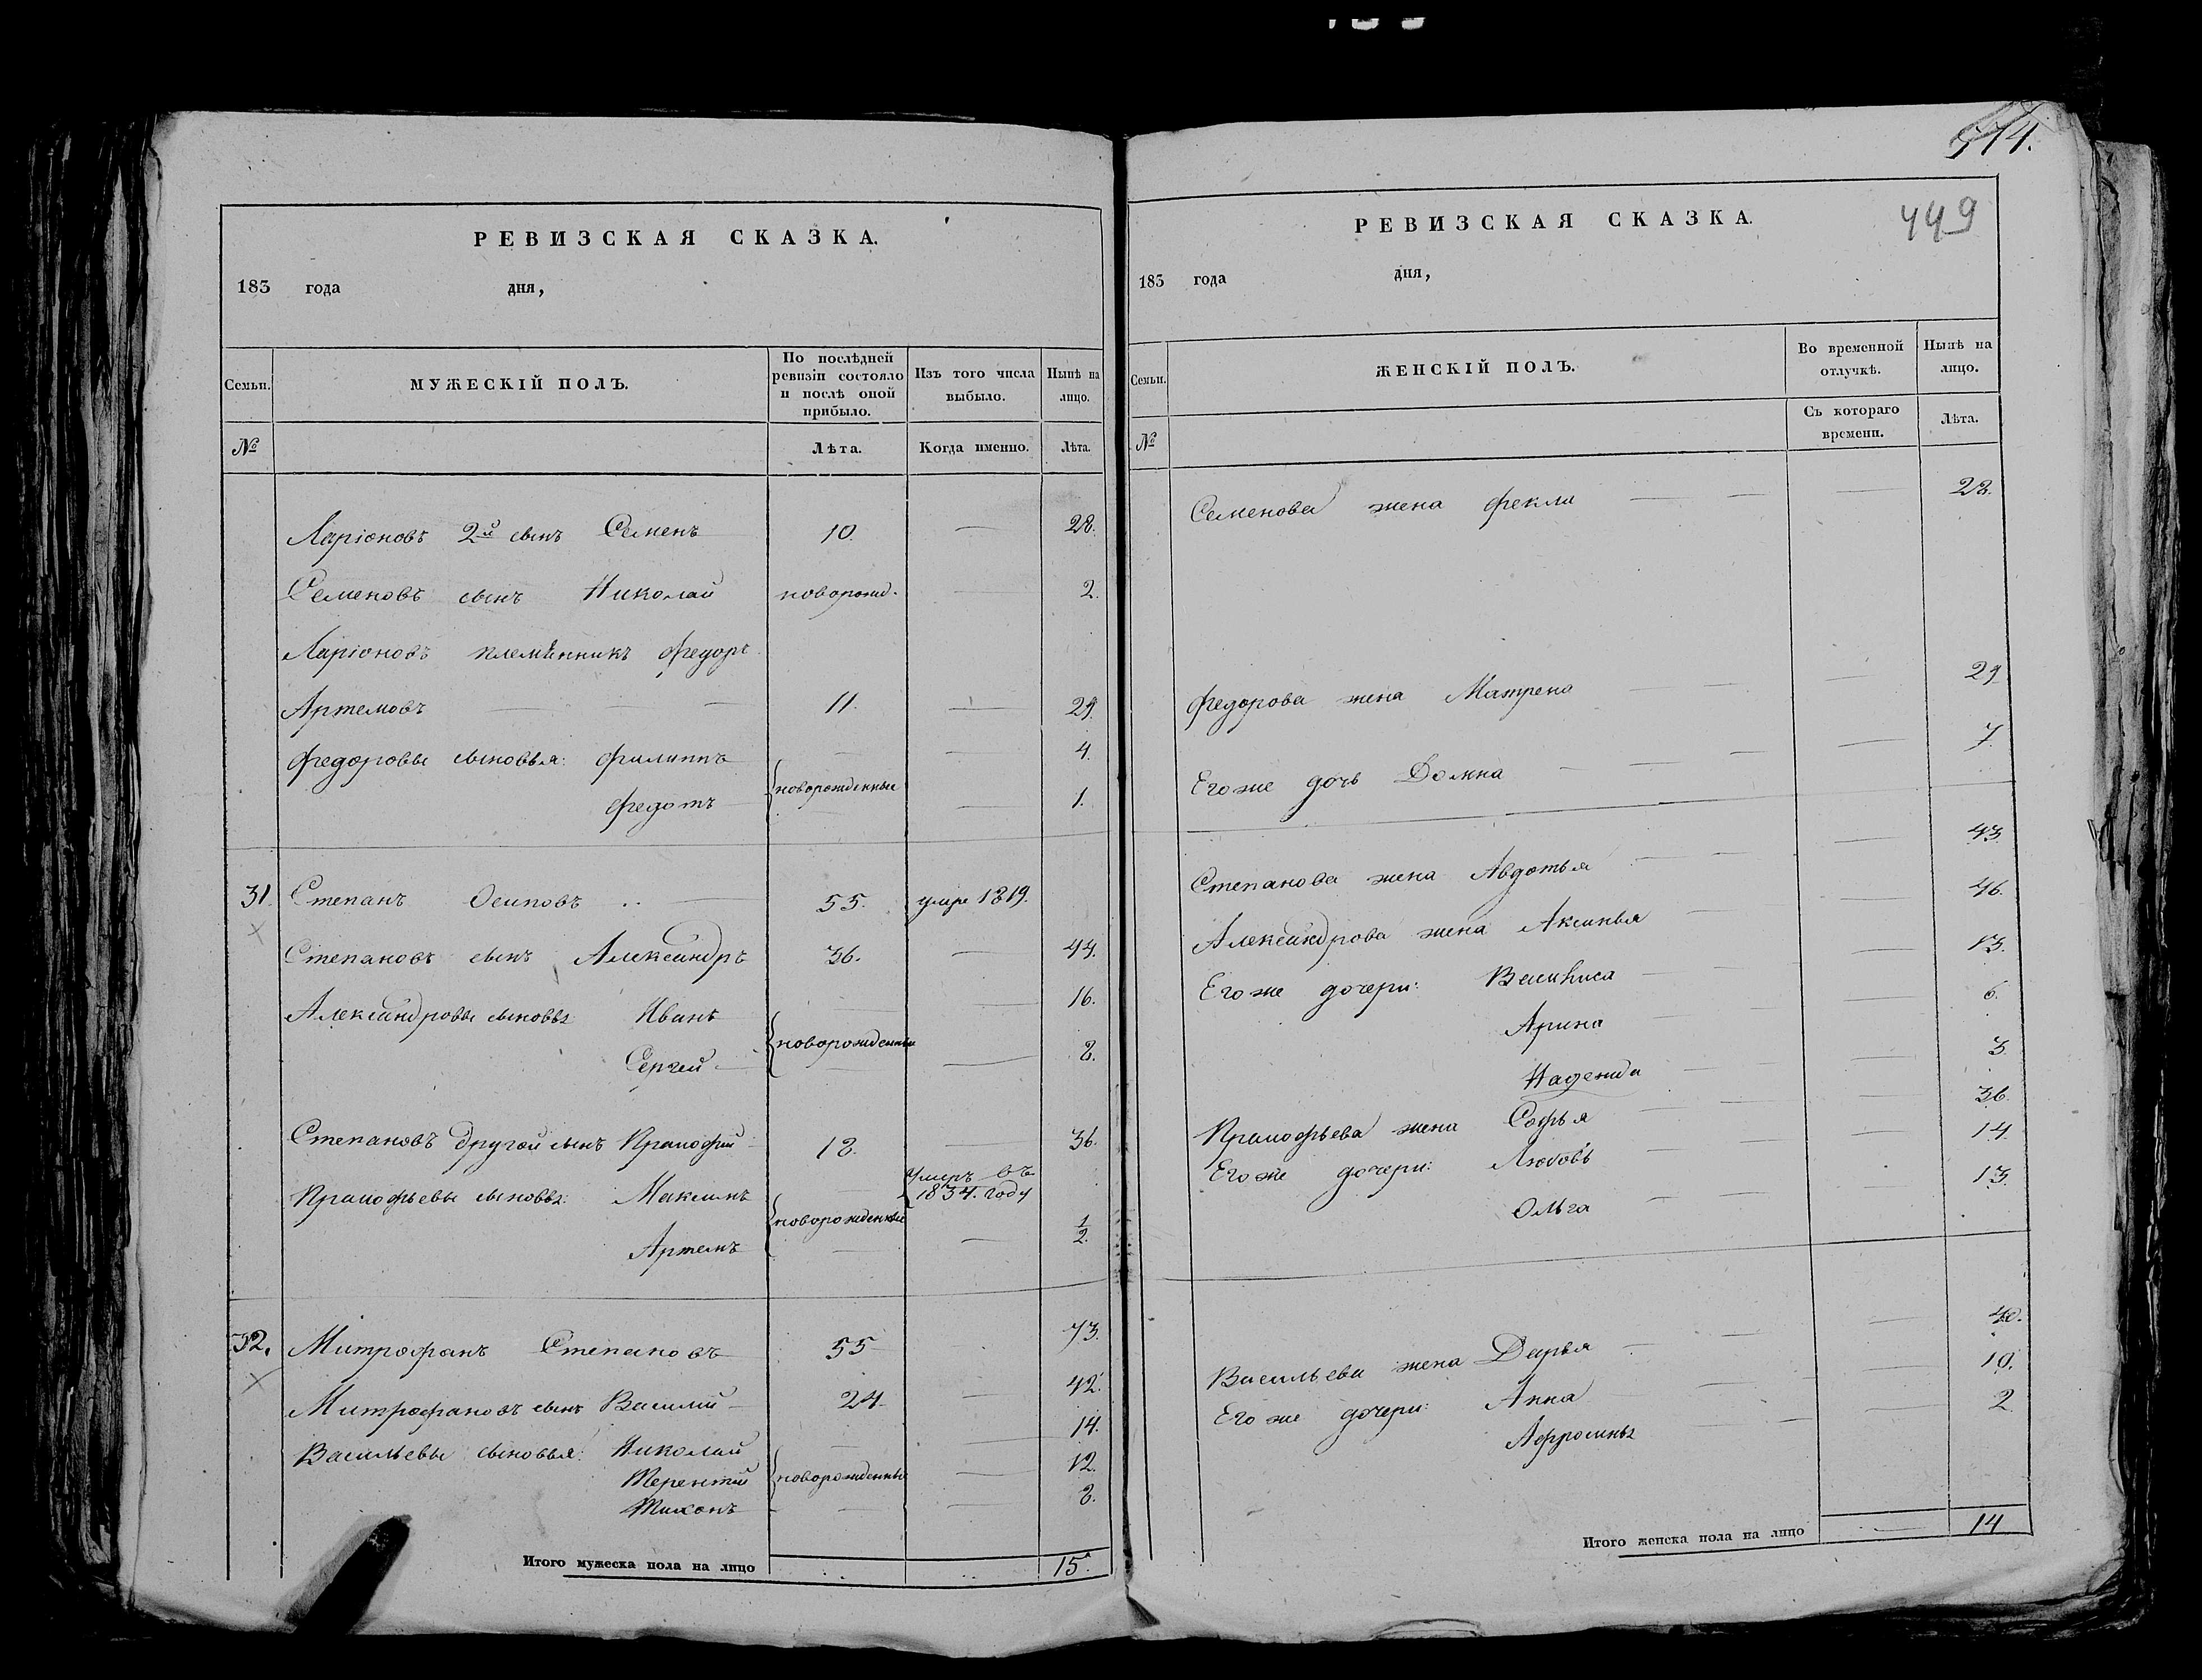 574.
449
РЕВИЗСКАЯ СКАЗКА.
183 года дня,
Семьи. МУЖЕСКІЙ ПОЛЪ. По послѣдней ревизіи состояло и послѣ оной прибыло. Изъ того числа выбыло. Нынѣ на лицо.
№ Лѣта. Когда именно. Лѣта.
Ларіоновъ 2й сынъ Семенъ 10. — 28.
Семеновъ сынъ Николай новорожд. — 2.
Ларіоновъ племянникъ Федоръ
Артемовъ — 11. — 29.
Федоровы сыновья: Филиппъ — 4.
новорожденные
Федотъ — 1.
31. Степанъ Осиповъ 55. умре 1819.
Степановъ сынъ Александръ 36. — 44.
Александровы сыновья: Иванъ — 16.
новорожденные
Сергей — 8.
Степановъ другой сынъ Прокофий 18. — 36.
Прокофьевы сыновья: Максимъ умеръ въ 1834. году
новорожденные
Артемъ — 1/2.
32. Митрофанъ Степановъ 55 73.
Митрофановъ сынъ Василий 24. — 42.
Васильевы сыновья: Николай — 14.
Терентий новорожденные — 12.
Тихонъ — 8.
Итого мужеска пола на лицо 15.
РЕВИЗСКАЯ СКАЗКА.
183 года дня,
Семьи. ЖЕНСКІЙ ПОЛЪ. Во временной отлучкѣ. Нынѣ на лицо.
№ Съ котораго времени. Лѣта.
Семенова жена Фекла — 28.
Федорова жена Матрена — 29
Его же дочь Домна — 7.
Степанова жена Авдотья — 43.
Александрова жена Аксинья — 46.
Его же дочери: Василиса — 13.
Арина — 6.
Надежда — 3.
Прокофьева жена Софья — 36.
Его же дочери: Любовь — 14.
Ольга — 13.
Васильева жена Дарья — 40.
Его же дочери: Анна — 10.
Афросинья — 2
Итого женска пола на лицо — 14